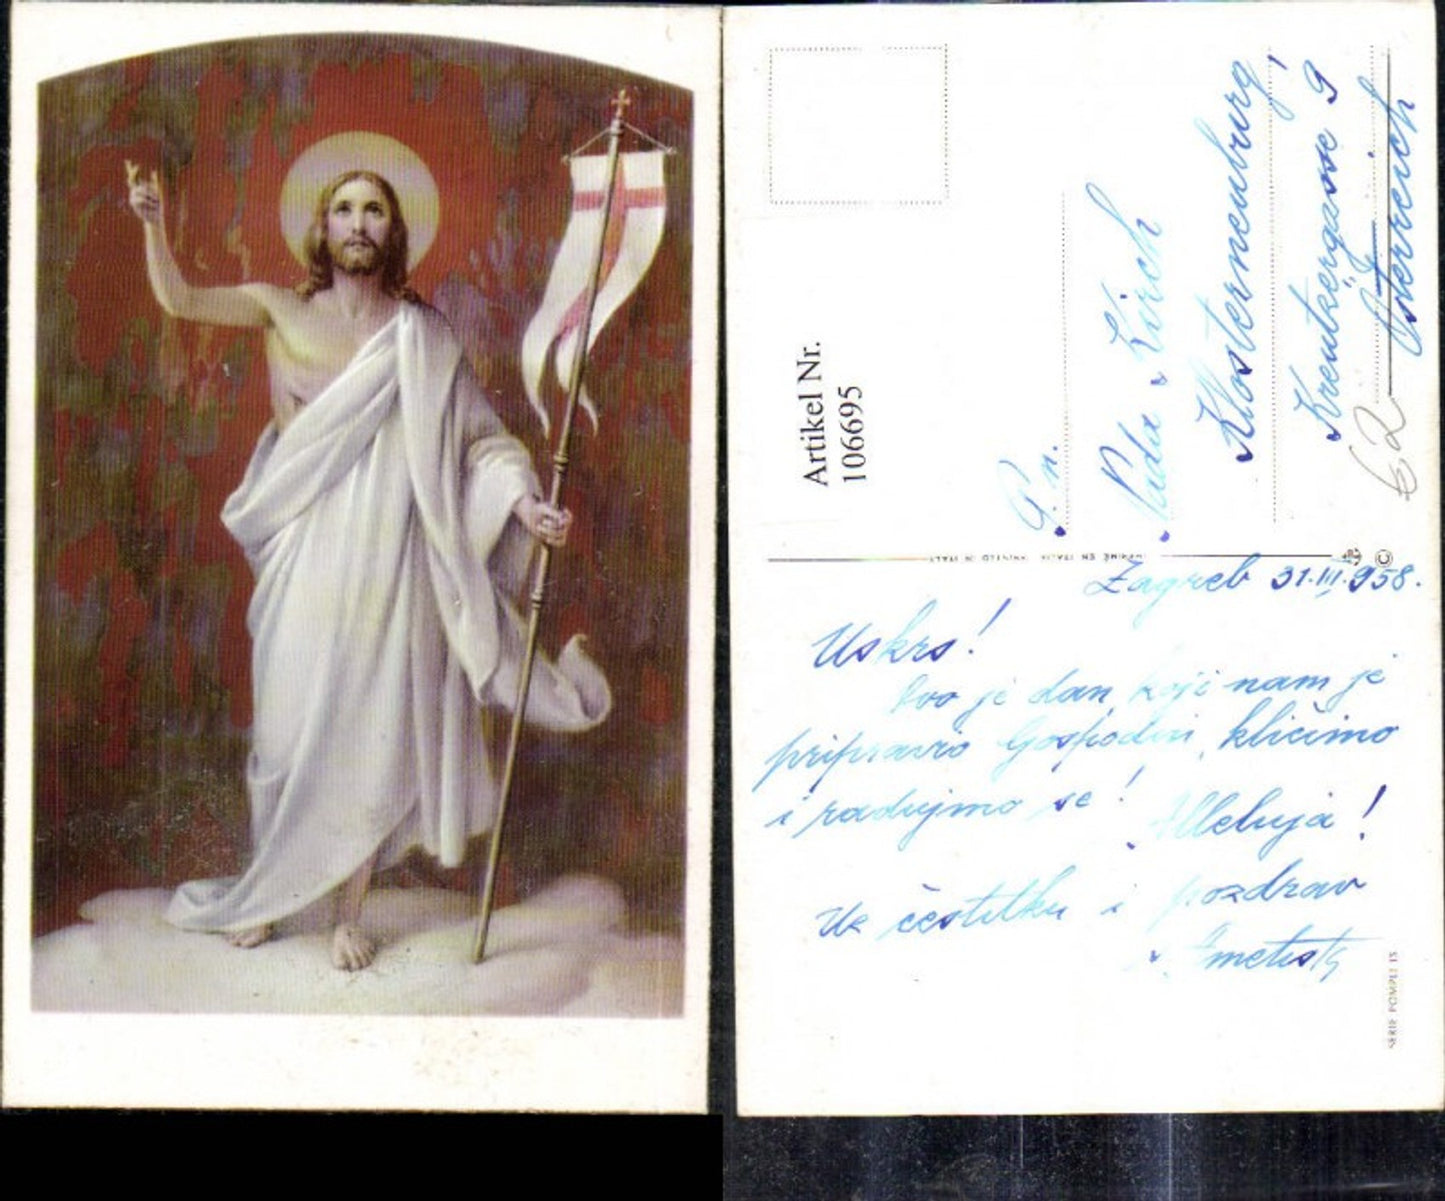 Artikel Nr.
106695
P. n.
Nada Kirch
Klosterneuburg!
Kreutzergasse 9
Österreich
€2
IMPRIMÉ EN ITALIE PRINTED IN ITALY
©
Zagreb 31.III.958.
Uskrs!
Ovo je dan koji nam je
pripravio Gospodin, kličimo
i radujmo se!
Alleluja!
Uz čestitku i pozdrav
SERIE POMPEI 15